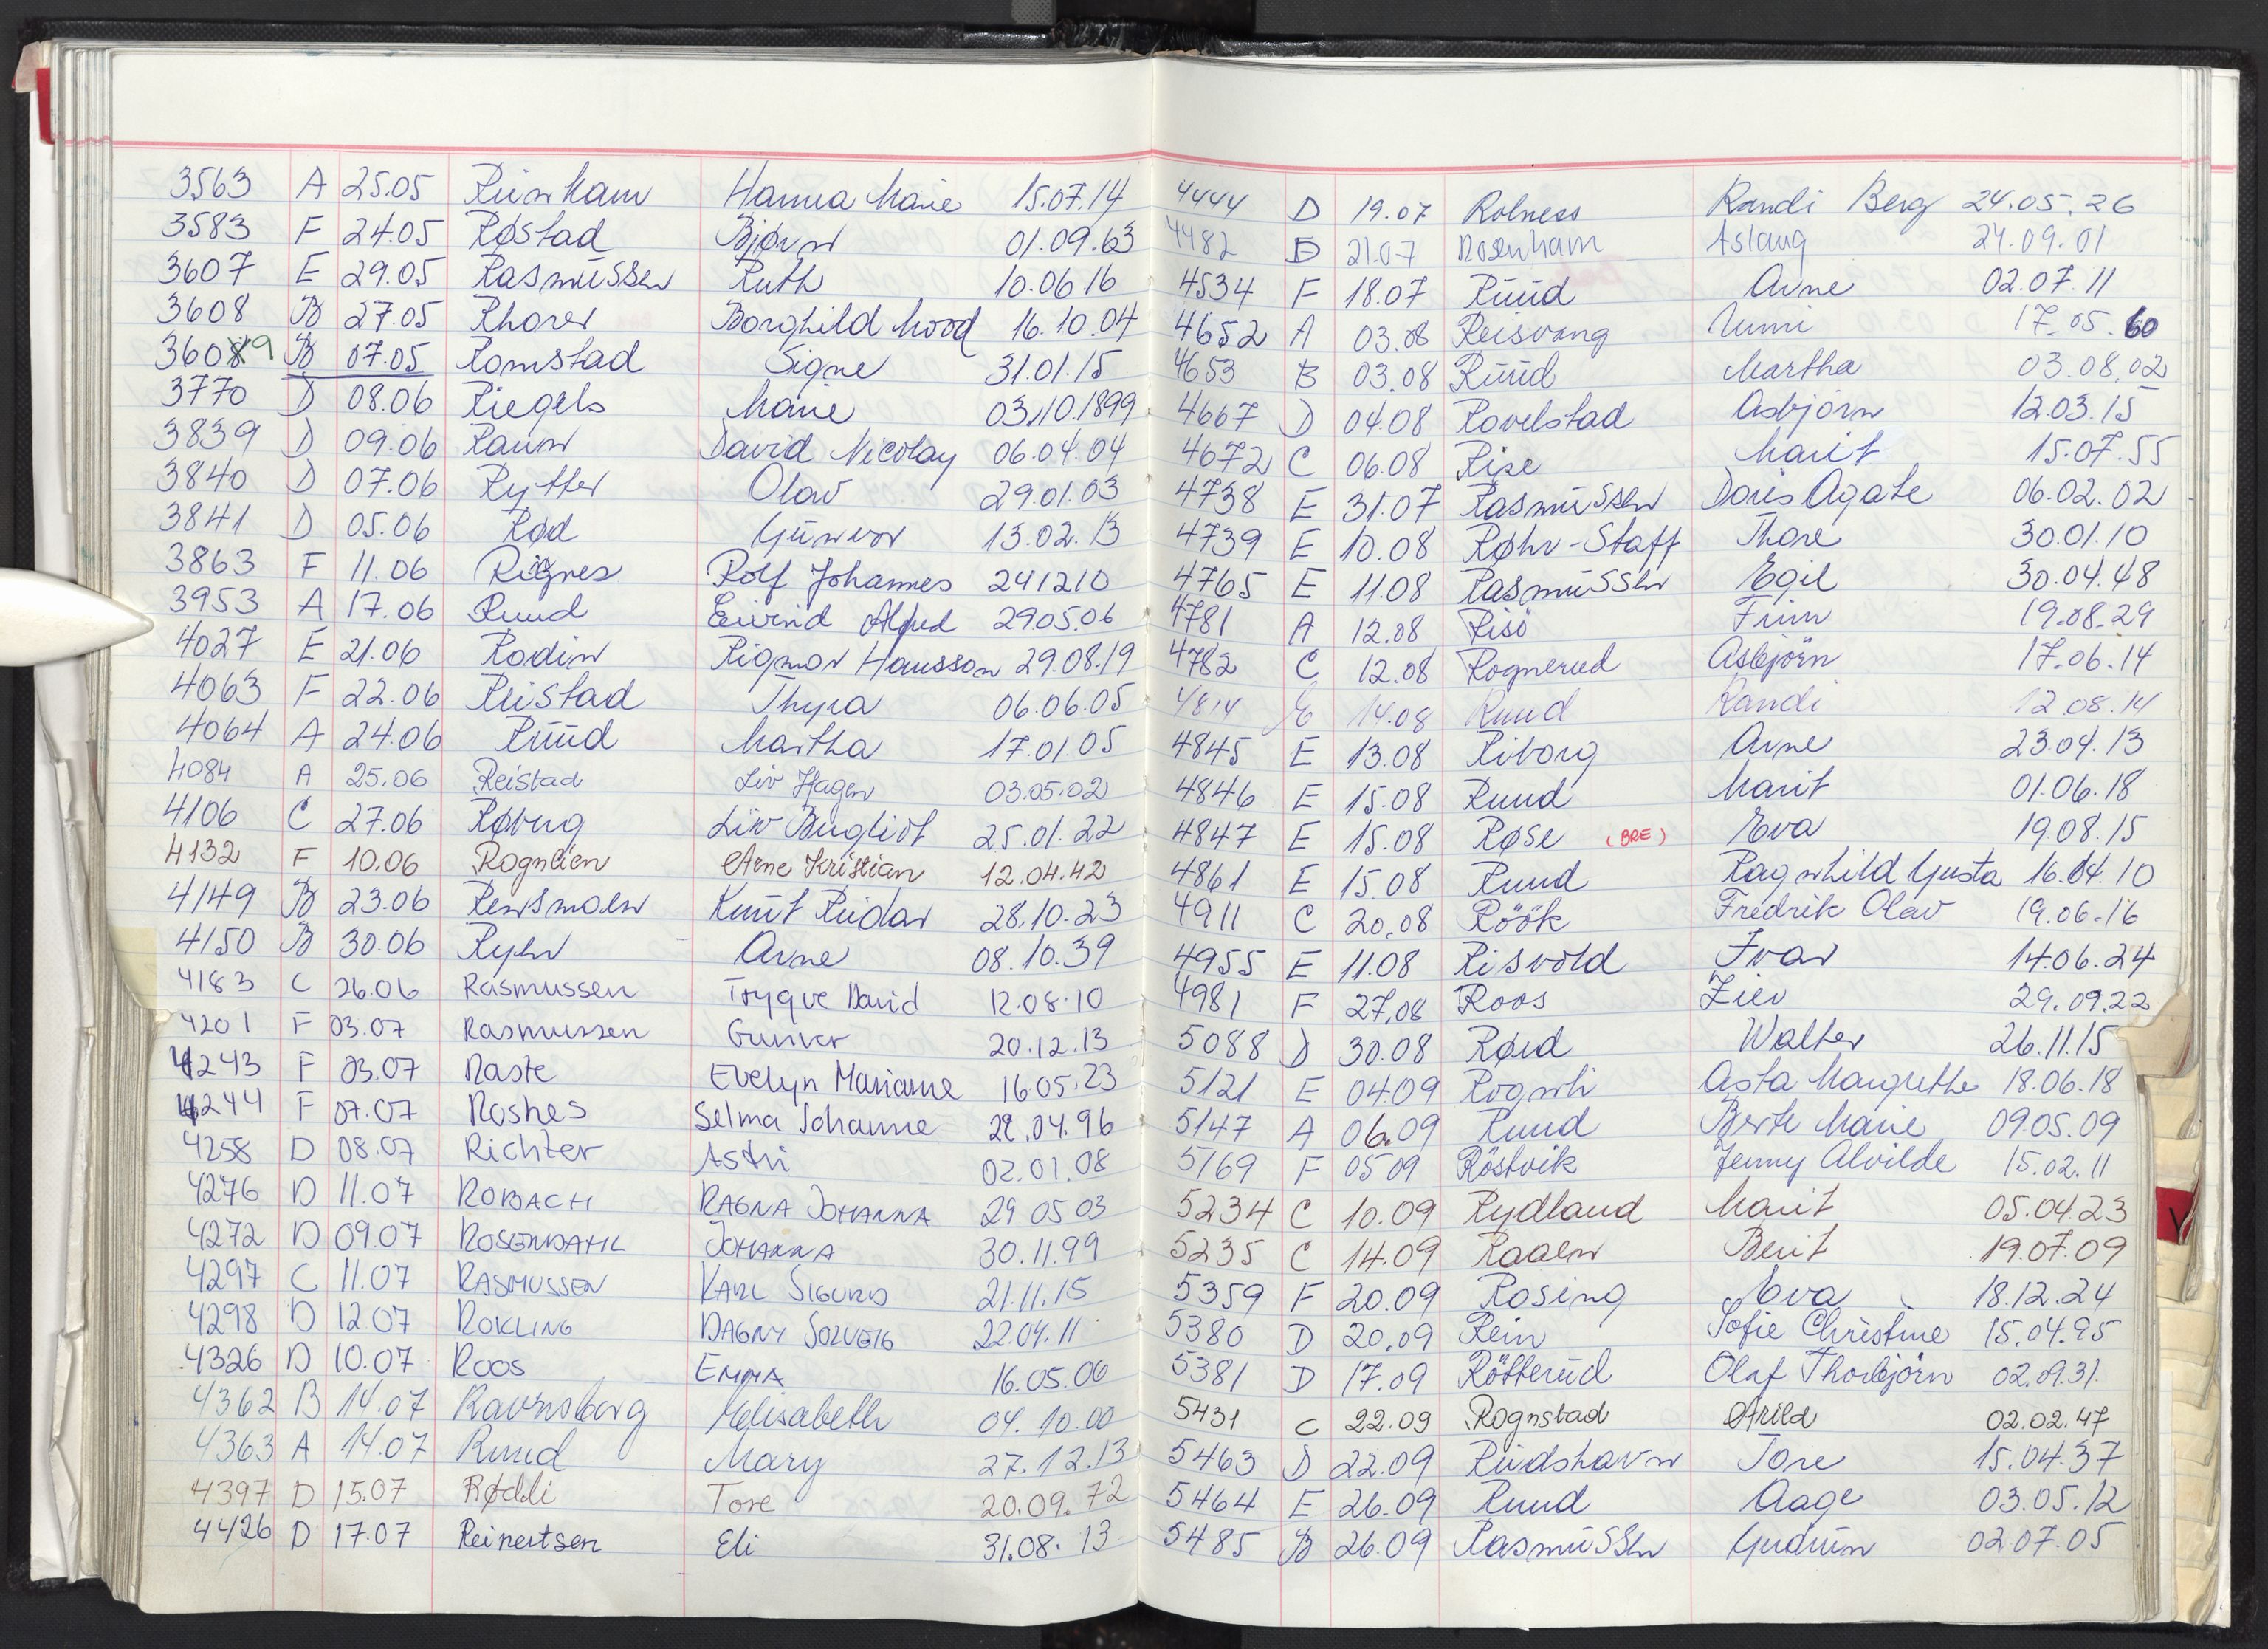 3563 A 25.05 Hanna Marie 15.07.14
3583 F 24.05 Røstad Bjørn 01.09.63
3607 E 29.05 Rasmussen Ruth 10.06.16
3608 B 27.05 Rhorer Borghild Mood 16.10.04
3609 B 07.05 Romstad Signe 31.01.15
3770 D 08.06 Riegels Marie 03.10.1899
3839 D 09.06 Ravn David Nicolay 06.04.04
3840 D 07.06 Rytter Olav 29.01.03
3841 D 05.06 Rød Gunvor 13.02.13
3863 F 11.06 Rignes Rolf Johannes 241210
3953 A 17.06 Ruud Eivind Alfred 29.05.06
4027 E 21.06 Rodin Rigmor Hansson 29.08.19
4063 F 22.06 Reistad Thyra 06.06.05
4064 A 24.06 Ruud Martha 17.01.05
4084 A 25.06 Reistad Liv Hagen 03.05.02
4106 C 27.06 Røberg Liv Bergliot 25.01.22
4132 F 10.06 Rognlien Arne Kristian 12.04.42
4149 B 23.06 Rensmoen Knut Reidar 28.10.23
4150 B 30.06 Ryen Arne 08.10.39
4183 C 26.06 Rasmussen Trygve David 12.08.10
4201 F 03.07 Rasmussen Gunvor 20.12.13
4243 F 03.07 Raste Evelyn Marianne 16.05.23
4244 F 07.07 Roshes Selma Johanne 28.04.96
4258 D 08.07 Richter Astri 02.01.08
4276 D 11.07 ROBACH RAGNA JOHANNA 29 05 03
4272 D 09.07 ROSENDAHL JOHANNA 30.11.99
4297 C 11.07 RASMUSSEN KARL SIGURD 21.11.15
4298 D 12.07 ROKLING DAGNY SOLVEIG 22.04.11
4326 D 10.07 ROOS EMMA 16.05.00
4362 B 14.07 Ravnsborg Elisabeth 04.10.00
4363 A 14.07 Ruud Mary 27.12.13
4397 D 15.07 Røddi Tore 20.09.72
4426 D 17.07 Reinertsen Eli 31.08.13
4444 D 19.07 Rolness Randi Berg 24.05.26
4482 D 21.07 Rosenhavn Aslaug 24.09.01
4534 F 18.07 Ruud Arne 02.07.11
4652 A 03.08 Reisvang Unni 17.05.60
4653 B 03.08 Ruud Martha 03.08.02
4667 D 04.08 Rovelstad Asbjørn 12.03.15
4672 C 06.08 Rise Marit 15.07.55
4738 E 31.07 Rasmussen Doris Agate 06.02.02
4739 E 10.08 Røhr-Staff Thore 30.01.10
4765 E 11.08 Rasmussen Egil 30.04.48
4781 A 12.08 Risö Finn 19.08.29
4782 C 12.08 Rognerud Asbjörn 17.06.14
4814 E 14.08 Ruud Randi 12.08.14
4845 E 13.08 Riborg Arne 23.04.13
4846 E 15.08 Ruud Marit 01.06.18
4847 E 15.08 Røse (BRE) Eva 19.08.15
4861 E 15.08 Ruud Ragnhild Gusta 16.04.10
4911 C 20.08 Röök Fredrik Olav 19.06.16
4955 E 11.08 Risvold Ivar 14.06.24
4981 F 27.08 Roos 29.09.22
5088 D 30.08 Walter 26.11.15
5121 E 04.09 Rognli Asta Margrethe 18.06.18
5147 A 06.09 Ruud Berte Marie 09.05.09
5169 F 05 09 Röstvik Jenny Alvilde 15.02.11
5234 C 10.09 Rydland Marit 05.04.23
5235 C 14.09 Raaen Berit 19.07.09
5359 F 20.09 Rosing Eva 18.12.24
5380 D 20.09 Rein Sofie Christine 15.04.95
5381 D 17.09 Rötterud Olaf Thorbjörn 02.09.31
5431 C 22.09 Rognstad Arild 02.02.47
5463 D 22.09 Rudshavn Tore 15.04.37
5464 E 26.09 Ruud Aage 03.05.12
5485 B 26.09 Rasmussen Gudrun 02.07.05